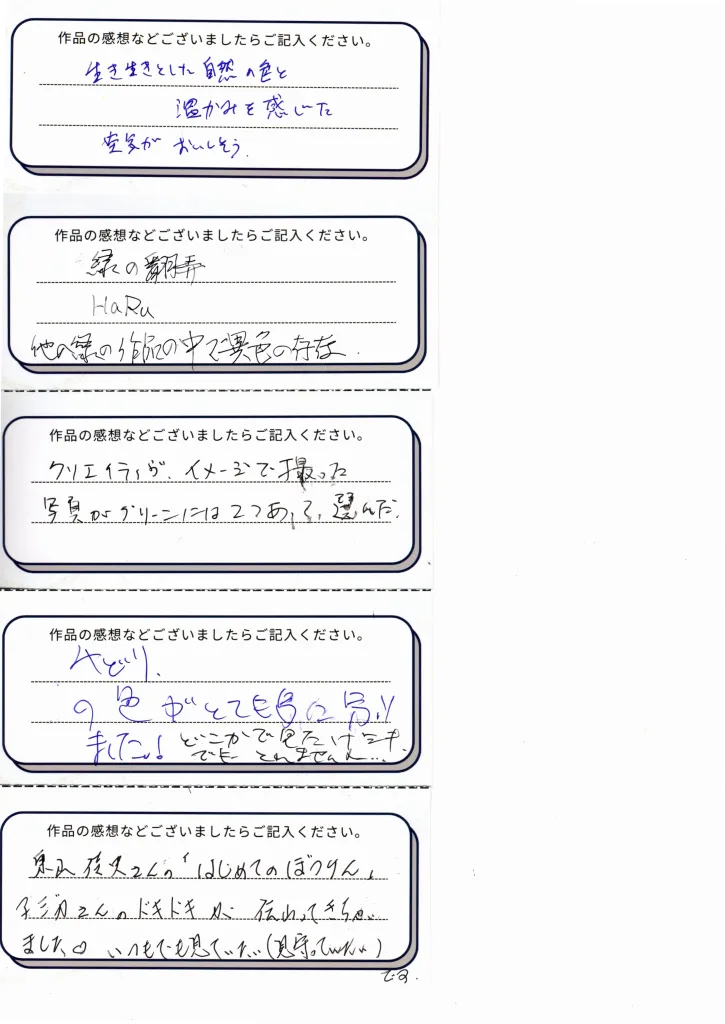 作品の感想などございましたらご記入ください。
生き生きとした自然の色と
温かみを感じた
空気がおいしそう.
作品の感想などございましたらご記入ください。
緑の翻弄
HaRu
他の緑の作品の中で異色の存在.
作品の感想などございましたらご記入ください。
クリエイティヴ、イメージで撮った
写真がグリーンには2つあり、選んだ.
作品の感想などございましたらご記入ください。
みどり、
の色がとても目に写り
ました!
どこかで見たけしき
でよ とれません...
作品の感想などございましたらご記入ください。
さんの「はじめてのぼうけん」
子ジカさんのドキドキが 伝わってきちゃい
ました♡ いつまでも見ていたい(見守っていたい)
です.